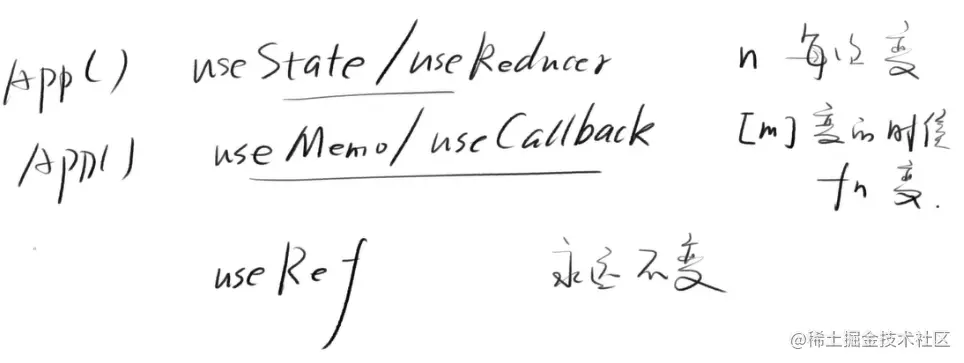 App() useState/useReducer n 每次变
App() useMemo/useCallback [m] 变的时候
fn 变.
useRef 永远不变
@稀土掘金技术社区